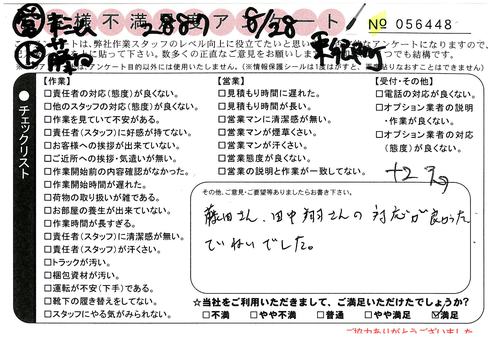 お客様不満足度アンケート
№ 056448
8/28
トは、弊社作業スタッフのレベル向上に役立てたいと思い
に貼って下さい。数多くの正直なご意見をお願いします
ケートは、アンケート目的以外には使用いたしません。(※情報保護シールは1度はがすと、再度貼りなおすことはできません)
チェックリスト
【作業】
□責任者の対応(態度)が良くない。
□他のスタッフの対応(態度)が良くない。
□作業を見ていて不安がある。
□責任者(スタッフ)に好感が持てない。
□お客様への挨拶が出来ていない。
□ご近所への挨拶・気遣いが無い。
□作業開始前の内容確認がなかった。
□作業開始時間が遅れた。
□荷物の取り扱いが雑である。
□お部屋の養生が出来ていない。
□作業時間が長すぎる。
□責任者(スタッフ)に清潔感が無い。
□責任者(スタッフ)が汗くさい。
□トラックが汚い。
□梱包資材が汚い。
□運転が不安(下手)である。
□靴下の履き替えをしてない。
□スタッフにやる気がみられない。
【営業】
□見積もり時間に遅れた。
□見積もり時間が長い。
□営業マンに清潔感が無い。
□営業マンが煙草くさい。
□営業マンが汗くさい。
□営業態度が良くない。
□営業の説明と作業が一致してない。
【受付・その他】
□電話の対応が良くない。
□オプション業者の説明
・作業が良くない。
□オプション業者の対応
(態度)が良くない。
その他、ご意見・ご要望等ありましたらお書き下さい。
藤田さん、田中翔さんの対応が良かった
ていねいでした。
☆当社をご利用いただきまして、ご満足いただけたでしょうか?
□不満 □やや不満 □普通 □やや満足 ☑満足
ご協力ありがとうございました